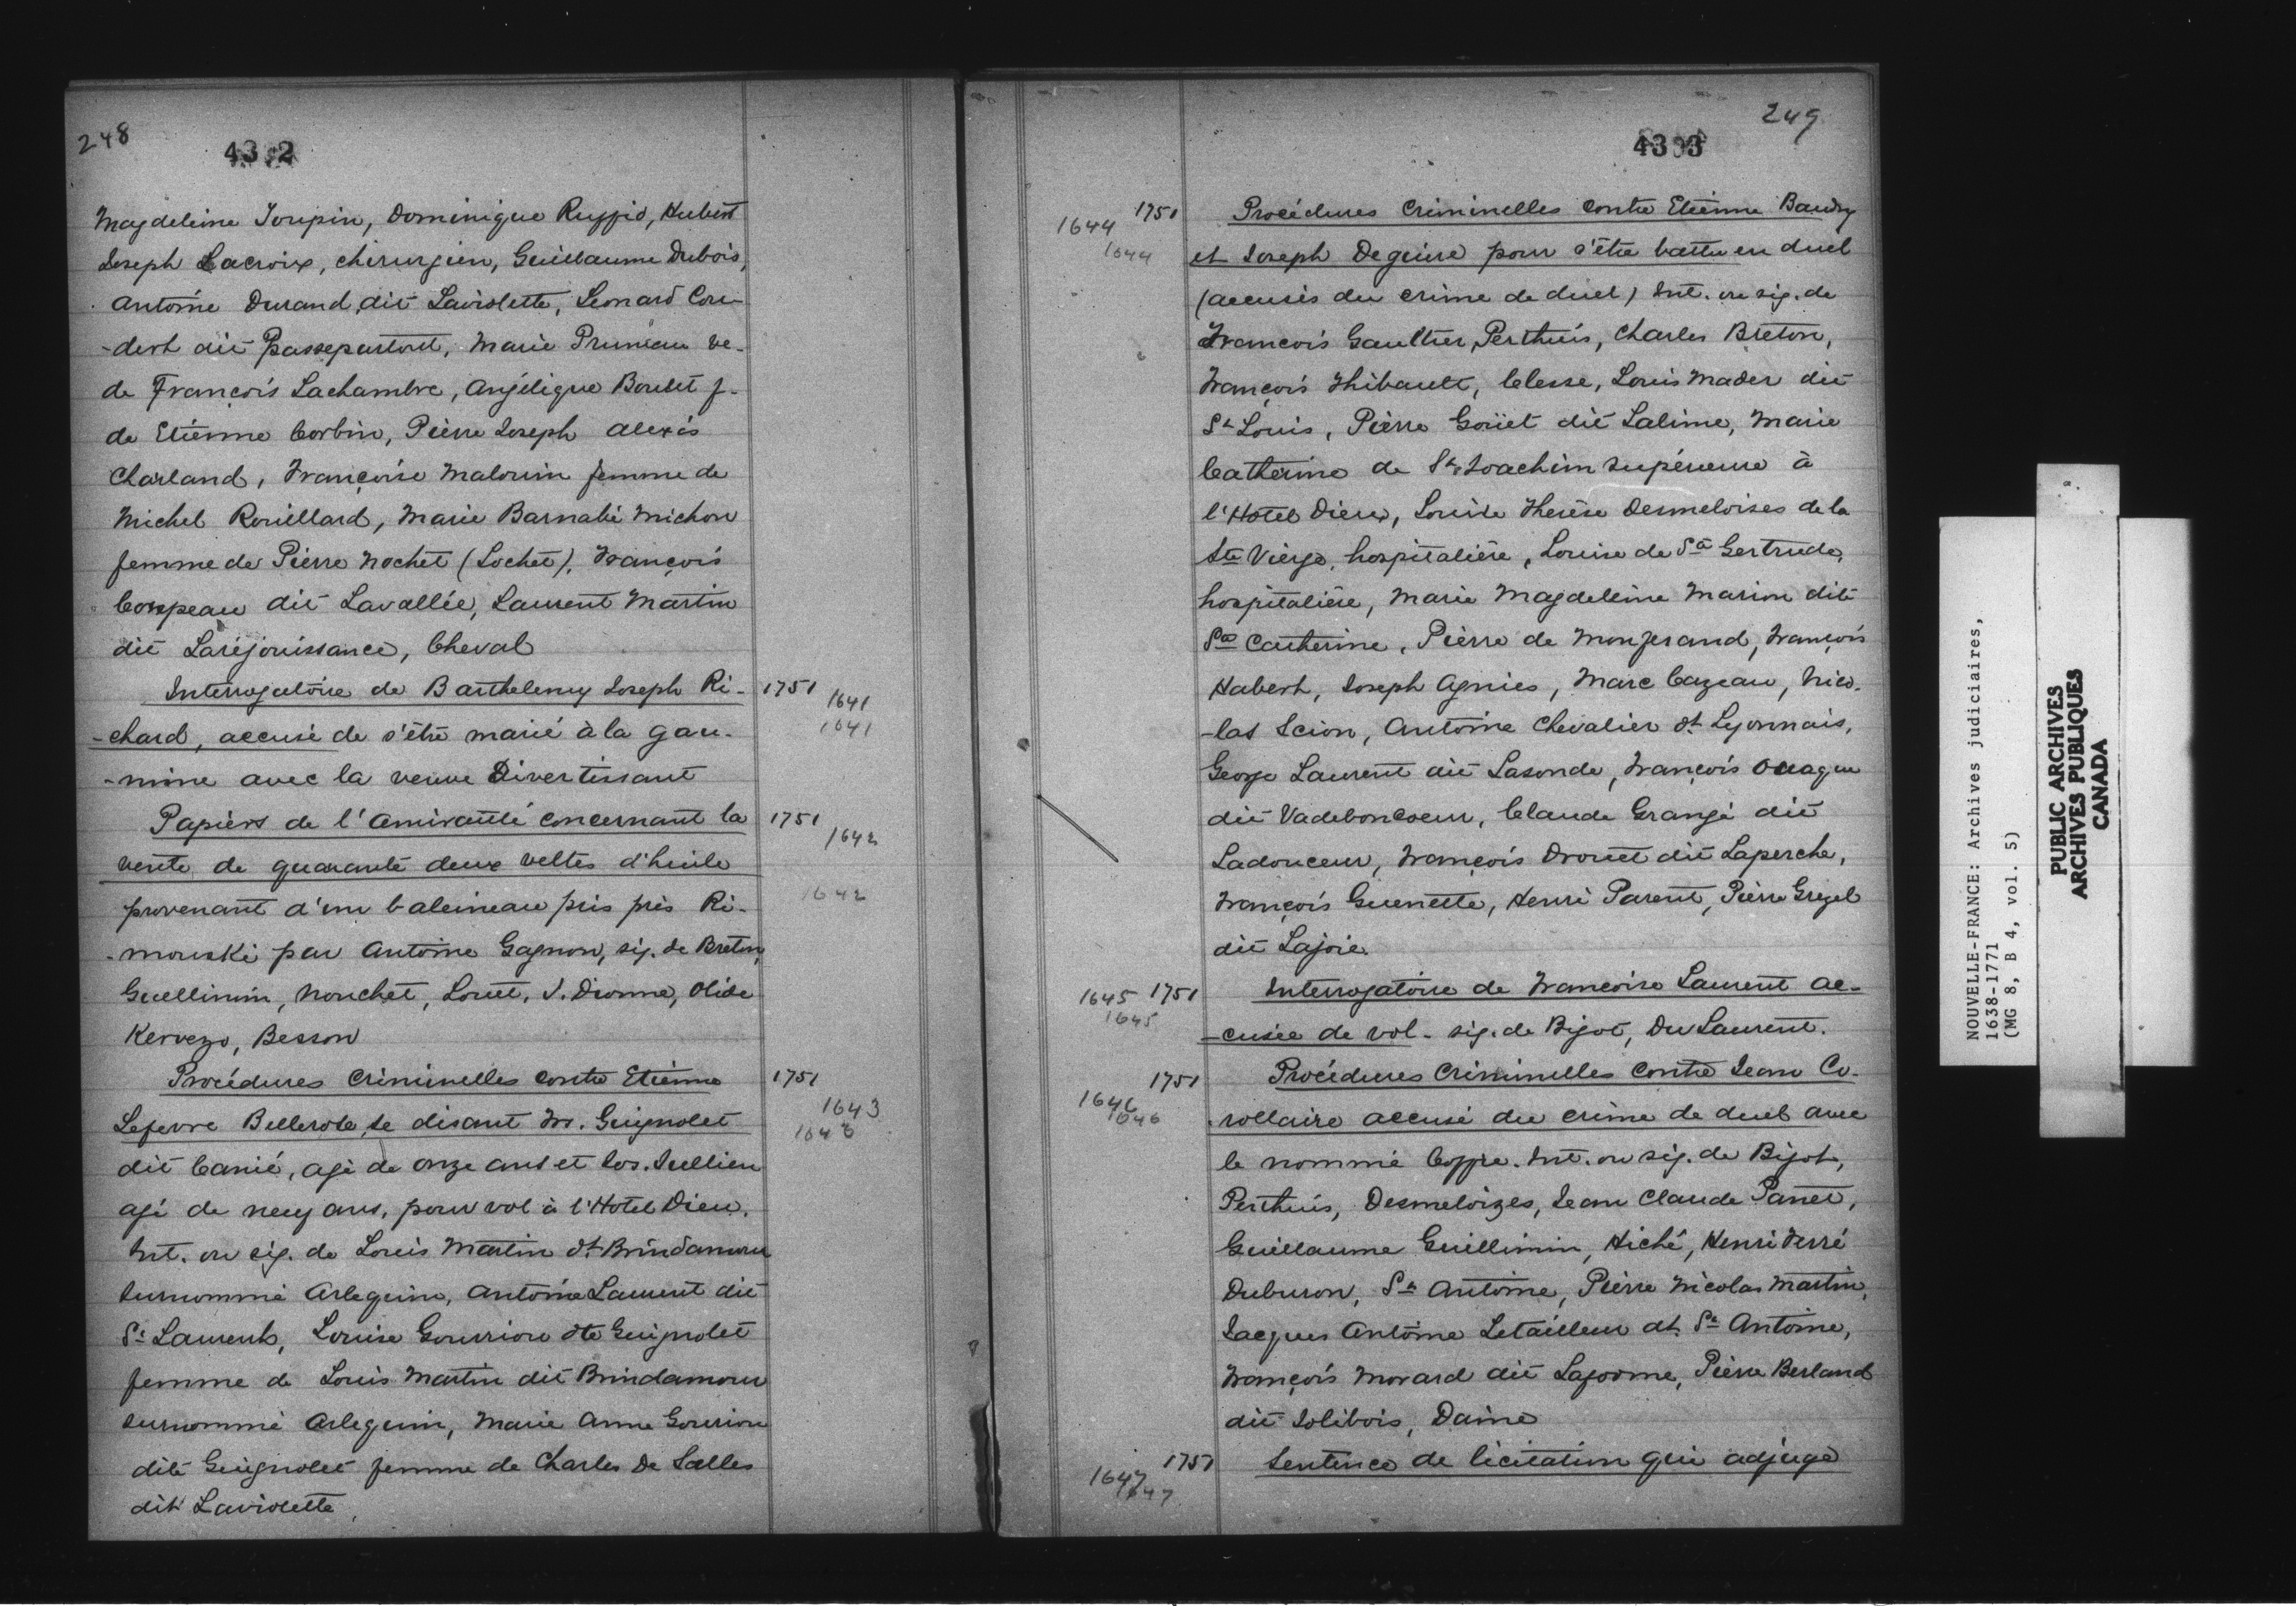 248
4332
Magdeleine Toupin, Dominique Ruffio, Hubert
Joseph Lacroix, chirurgien, Guillaume Dubois,
Antoine Durand dit Laviolette, Leonard Cou-
-dert dit Passepartout, Marie Pruneau ve-
de François Lachambre, Anjélique Boulet f-
de Etienne Corbin, Pierre Joseph Alexis
Charland, Françoise Malouin femme de
Michel Rouillard, Marie Barnabé Michon
femme de Pierre Nochet (Lochet), François
Compeau dit Lavallée, Laurent Martin
dit Laréjouissance, Cheval
Interrogatoire de Barthelemy Joseph Ri- 1751 1641
-chard, accusé de s'être marié à la gau- 1641
-mine avec la veuve Divertissant
Papiers de l'Amirauté concernant la 1751 1642
vente de quarante deux veltes d'huile
provenant d'un baleineau pris près Ri- 1642
-mouski par Antoine Gagnon, sig. de Breton,
Guellimin, Nouchet, Louet, J. Dionne, Olide
Kervezo, Besson
Procédures Criminelles contre Etienne 1751
Lefevre Bellerose se disant frs. Guignolet 1643
dit Canié, agé de onze ans et Jos. Jullien 1643
agé de neuf ans, pour vol à l'Hotel Dieu.
Int. ou sig. de Louis Martin dt Brindamour
surnommé Arlequin, Antoine Laurent dit
St Laurent, Louise Gourrion dte Guignolet
femme de Louis Martin dit Brindamour
surnommé Arlequin, Marie Anne Gourion
dite Guignolet femme de Charles De Salles
dit Laviolette,
249
4333
1644 1751 Procédures Criminelles contre Etienne Baudry
1644 et Joseph Deguire pour s'être battu en duel
(accusés du crime de duel) Int. ou sig. de
François Gaultier, Perthuis, Charles Breton,
François Thibault, Clesse, Louis Mader dit
St Louis, Pierre Goüet dit Lalime, Marie
Catherine de St Joachim supérieure à
l'Hotel Dieu, Louise Therèse Desmeloises de la
Ste Vierge, hospitalière, Louise de Ste Gertrude,
hospitalière, Marie Magdeleine Marion dite
Ste Catherine, Pierre de Monferand, François
Habert, Joseph Agnies, Marc Cazeau, Nico-
-las Scion, Antoine Chevalier dt Lyonnais,
George Laurent dit Lasonde, François
dit Vadeboncoeur, Claude Grangé dit
Ladouceur, François Drouet dit Laperche,
François Guenette, Henri Parent, Pierre Grezel
dit Lajoie.
1645 1751 Interrogatoire de Francoise Laurent ac-
1645 -cusée de vol - sig. de Bigot, Du Laurent.
1751 Procédures Criminelles contre Jean Co-
1646 1646 -rollaire accusé du crime de duel avec
le nommé Coffre. Int. ou sig. de Bigot,
Perthuis, Desmeloizes, Jean Claude Panet,
Guillaume Guillimin, Hiché, Henri Ferré
Duburon, St Antoine, Pierre Nicolas Martin,
Jacques Antoine Letailleur dt. St Antoine,
François Morard dit Laforme, Pierre Berland
dit Jolibois, Daine
1751 Sentence de licitation qui adjuge
1647 1647
NOUVELLE-FRANCE: Archives judiciaires,
1638-1771
(MG 8, B 4, vol. 5)
PUBLIC ARCHIVES
ARCHIVES PUBLIQUES
CANADA